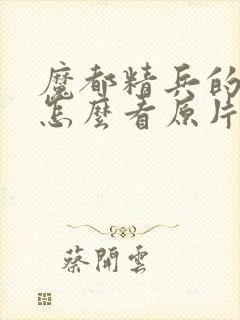 魔都精兵的
怎麼看原片
蔡開雲